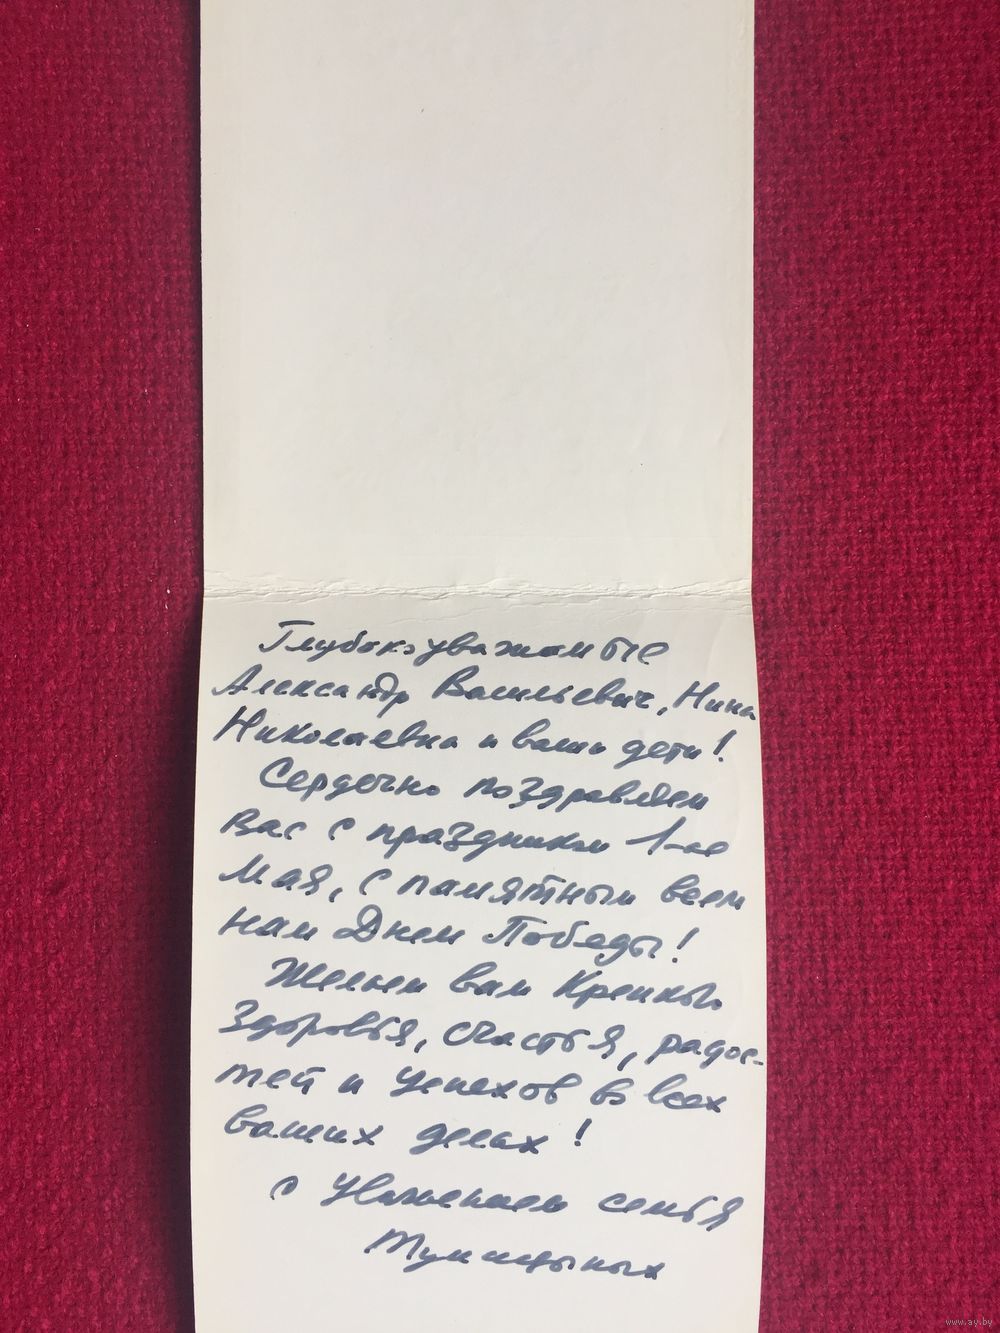 Глубокоуважаемые
Александр Васильевич, Нина
Николаевна и ваши дети!
Сердечно поздравляем
вас с праздником 1-ое
Мая, с памятным всем
нам Днем Победы!
Желаем вам крепкого
здоровья, счастья, радос-
тей и успехов во всех
ваших делах!
с уважением семья
www.ay.by